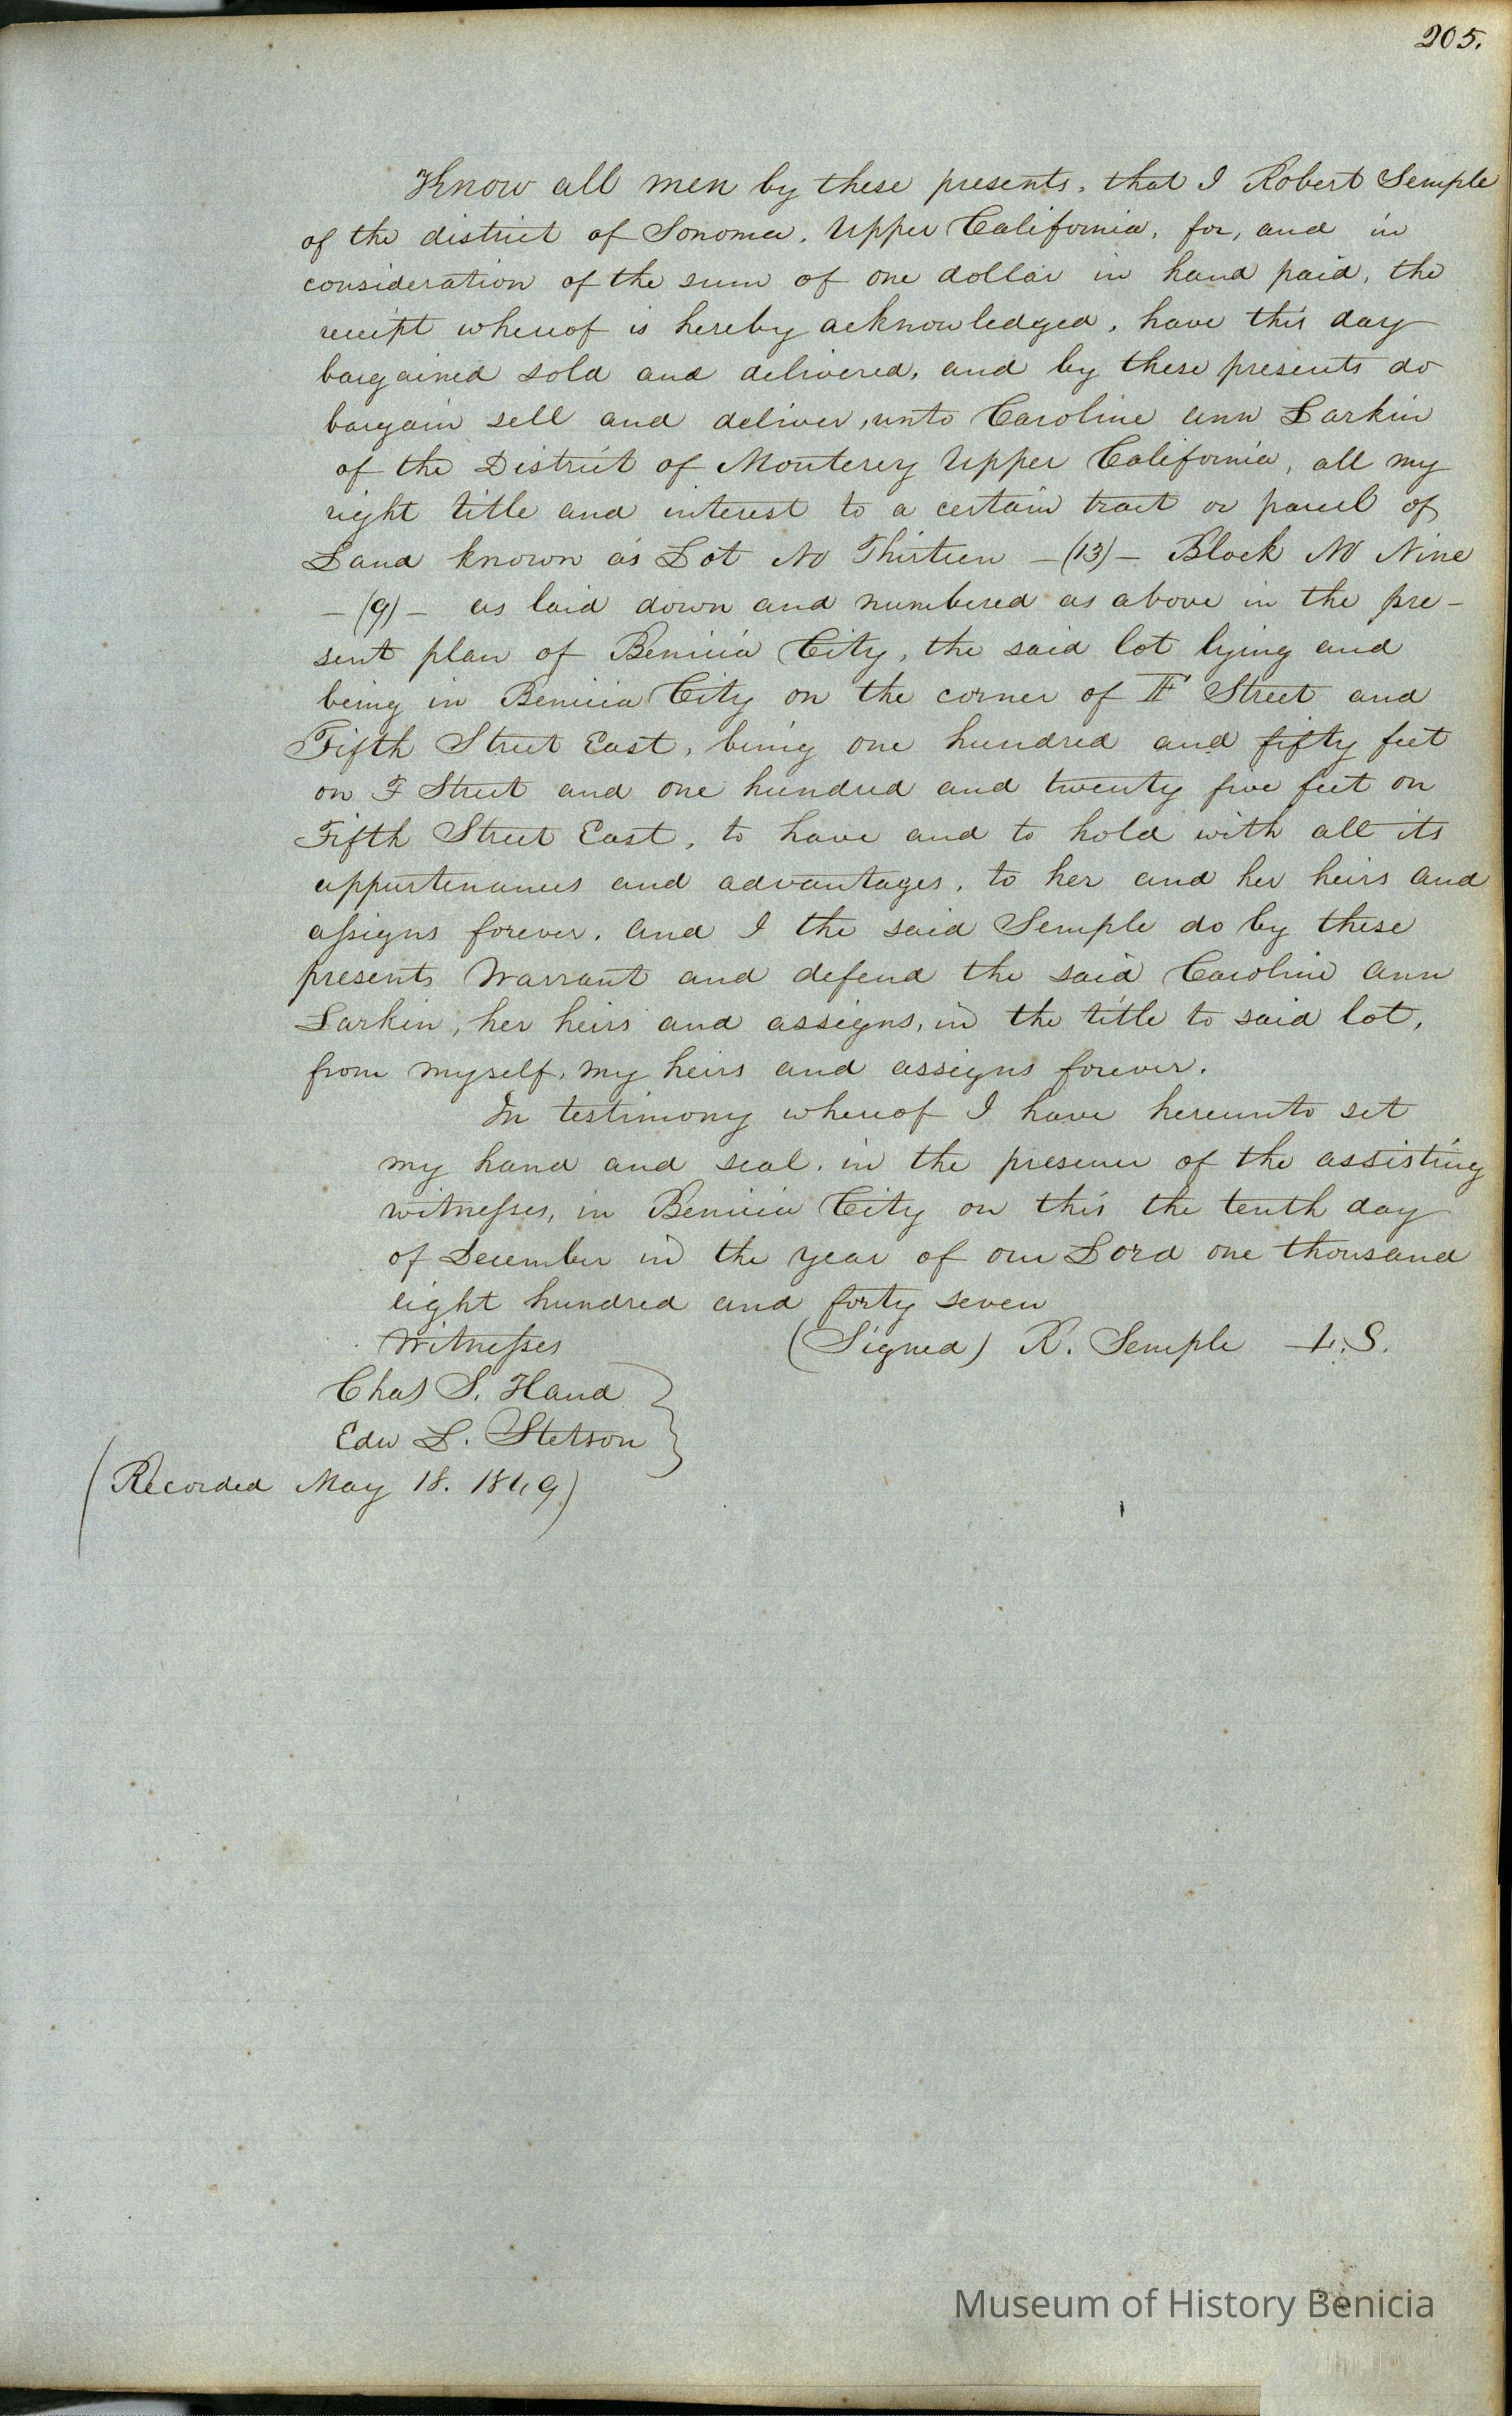 205.
Know all men by these presents, that I Robert Semple
of the district of Sonoma, Upper California, for, and in
consideration of the sum of one dollar in hand paid, the
receipt whereof is hereby acknowledged, have this day
bargained sold and delivered, and by these presents do
bargain sell and deliver, unto Caroline ann Larkin
of the District of Monterey Upper California, all my
right title and interest to a certain tract or parcel of
Land known as Lot No Thirteen -(13)- Block No Nine
-(9)- as laid down and numbered as above in the pre-
sent plan of Benicia City, the said lot lying and
being in Benicia City on the corner of F Street and
Fifth Street East, being one hundred and fifty feet
on F Street and one hundred and twenty five feet on
Fifth Street East, to have and to hold with all its
appurtenances and advantages, to her and her heirs and
assigns forever, and I the said Semple do by these
presents Warrant and defend the said Caroline ann
Larkin, her heirs and assigns, in the title to said lot,
from myself, my heirs and assigns forever.
In testimony whereof I have hereunto set
my hand and seal, in the presence of the assisting
witnesses, in Benicia City on this the tenth day
of December in the year of our Lord one thousand
eight hundred and forty seven
Witnesses (Signed) R. Semple L.S.
Chas S. Hand
Edw L. Stetson
(Recorded May 18. 1849)
Museum of History Benicia